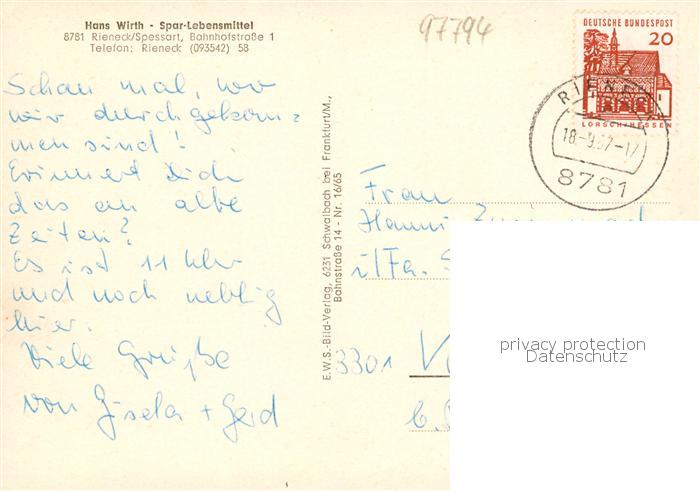 Hans Wirth - Spar-Lebensmittel
8781 Rieneck/Spessart, Bahnhofstraße 1
Telefon: Rieneck (093542) 58
97794
DEUTSCHE BUNDESPOST
20
LORSCH/HESSEN
18.-9.67-17
8781
Schau mal, wo
wir durchgekom=
men sind!
Erinnert Dich
das an alte
Zeiten?
Es ist 11 Uhr
und noch neblig
hier.
Viele Grüße
von Gisela + Gerd
E.W.S.-Bild-Verlag, 6231 Schwalbach bei Frankfurt/M.,
Bahnstraße 14 - Nr. 16/65
Frau
Hanni
i/Fa. S
3301 V
privacy protection
Datenschutz